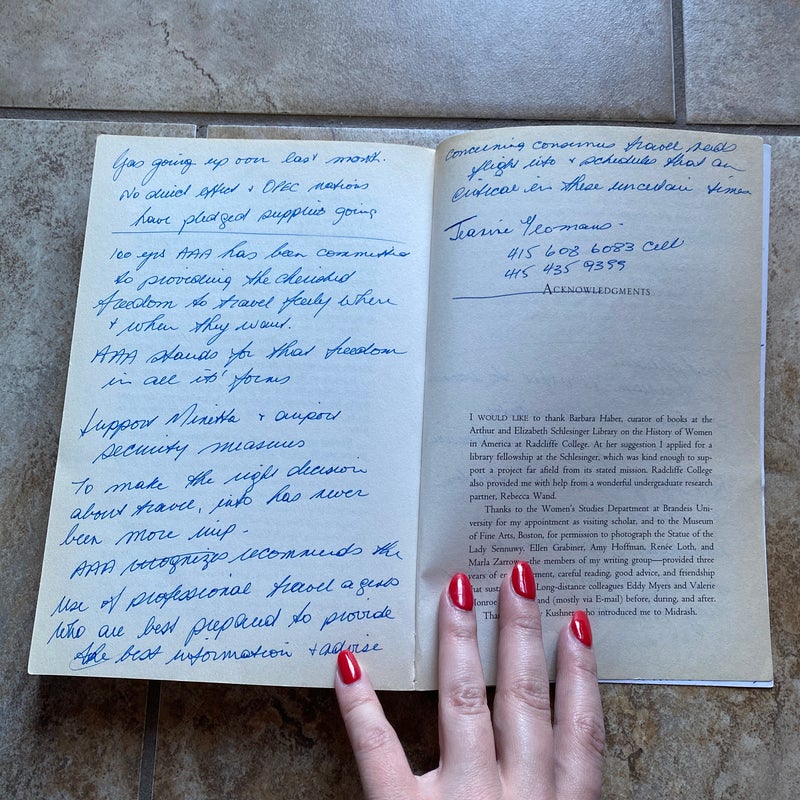 Gas going up over last month.
No direct effect + OPEC nations
have pledged supplies going
100 yrs AAA has been committed
to providing the cherished
freedom to travel freely where
+ when they want.
AAA stands for that freedom
in all its' forms
Support Minetta + airport
security measures
To make the right decision
about travel, info has never
been more imp.
AAA recognizes recommends the
use of professional travel agents
who are best prepared to provide
the best information + advise
concerning consumers travel needs
flight info + schedules that are
critical in these uncertain times
Jeanne Yeomans
415 608 6083 Cell
415 435 9399
ACKNOWLEDGMENTS
I WOULD LIKE to thank Barbara Haber, curator of books at the
Arthur and Elizabeth Schlesinger Library on the History of Women
in America at Radcliffe College. At her suggestion I applied for a
library fellowship at the Schlesinger, which was kind enough to sup-
port a project far afield from its stated mission. Radcliffe College
also provided me with help from a wonderful undergraduate research
partner, Rebecca Wand.
Thanks to the Women's Studies Department at Brandeis Uni-
versity for my appointment as visiting scholar, and to the Museum
of Fine Arts, Boston, for permission to photograph the Statue of the
Lady Sennuwy. Ellen Grabiner, Amy Hoffman, Renée Loth, and
Marla Zarrow—the members of my writing group—provided three
years of ement, careful reading, good advice, and friendship
that sus Long-distance colleagues Eddy Myers and Valerie
Monroe and (mostly via E-mail) before, during, and after.
Than Kushner who introduced me to Midrash.